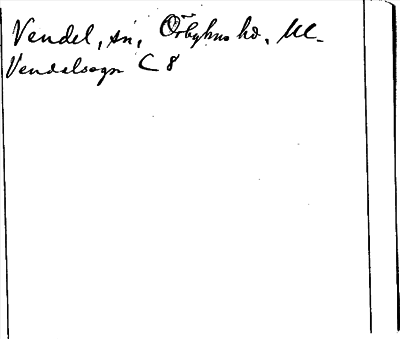 Vendel, sn, Örbyhus hd. Ul.
Vendelsogn C 8